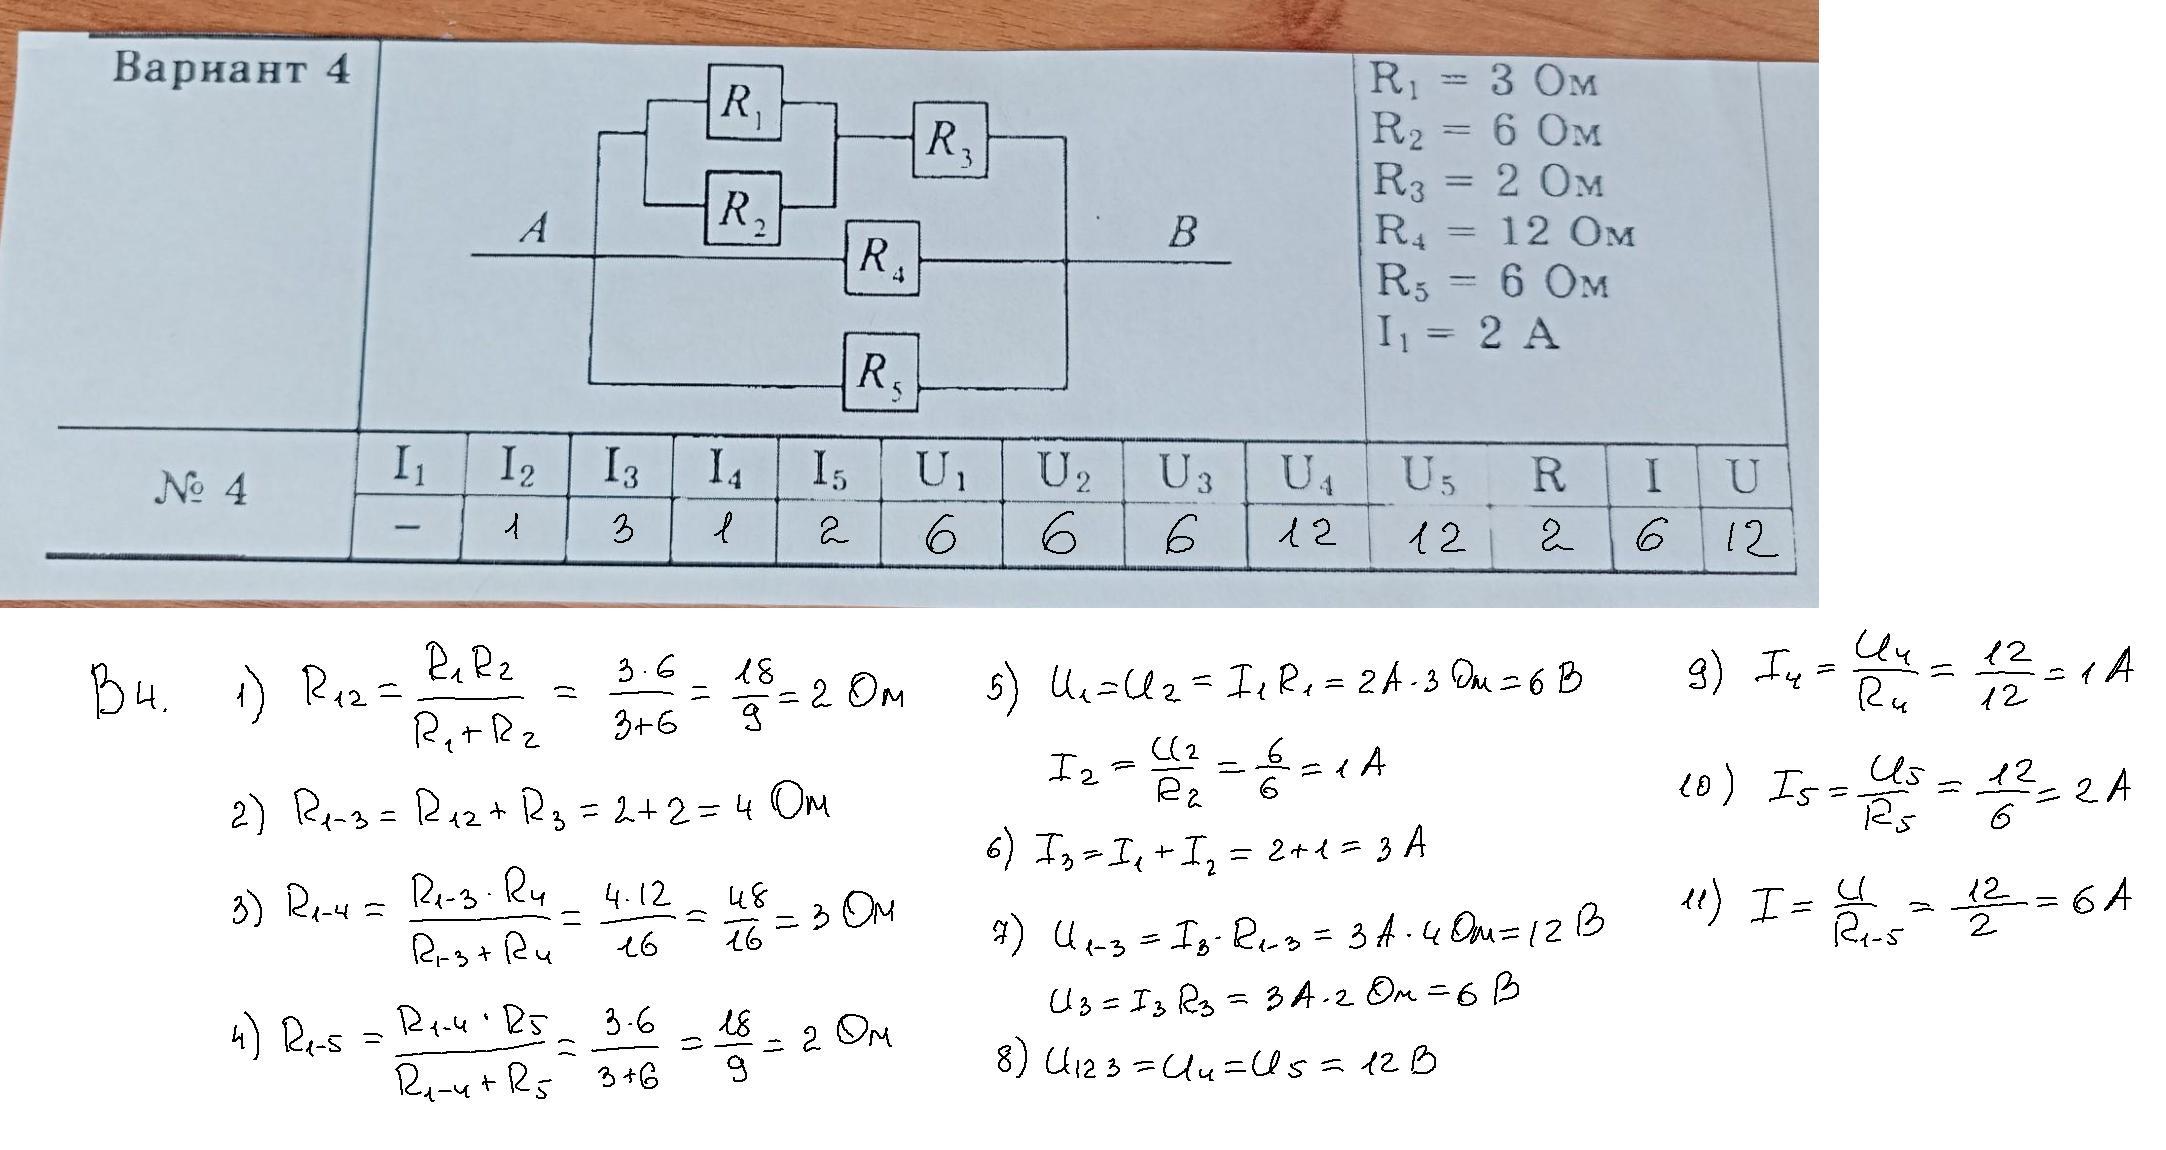 Вариант 4
R₁
R₂
R₃
A
R₄
B
R₅
R₁ = 3 Ом
R₂ = 6 Ом
R₃ = 2 Ом
R₄ = 12 Ом
R₅ = 6 Ом
I₁ = 2 А
№ 4 I₁ I₂ I₃ I₄ I₅ U₁ U₂ U₃ U₄ U₅ R I U
– 1 3 1 2 6 6 6 12 12 2 6 12
В4. 1) R₁₂ = R₁R₂/(R₁+R₂) = 3·6/(3+6) = 18/9 = 2 Ом
2) R₁₋₃ = R₁₂ + R₃ = 2+2 = 4 Ом
3) R₁₋₄ = R₁₋₃·R₄/(R₁₋₃+R₄) = 4·12/16 = 48/16 = 3 Ом
4) R₁₋₅ = R₁₋₄·R₅/(R₁₋₄+R₅) = 3·6/(3+6) = 18/9 = 2 Ом
5) U₁=U₂ = I₁R₁ = 2А·3 Ом = 6 В
I₂ = U₂/R₂ = 6/6 = 1 А
6) I₃ = I₁ + I₂ = 2+1 = 3 А
7) U₁₋₃ = I₃·R₁₋₃ = 3А·4 Ом = 12 В
U₃ = I₃R₃ = 3А·2 Ом = 6 В
8) U₁₂₃ = U₄ = U₅ = 12 В
9) I₄ = U₄/R₄ = 12/12 = 1 А
10) I₅ = U₅/R₅ = 12/6 = 2 А
11) I = U/R₁₋₅ = 12/2 = 6 А